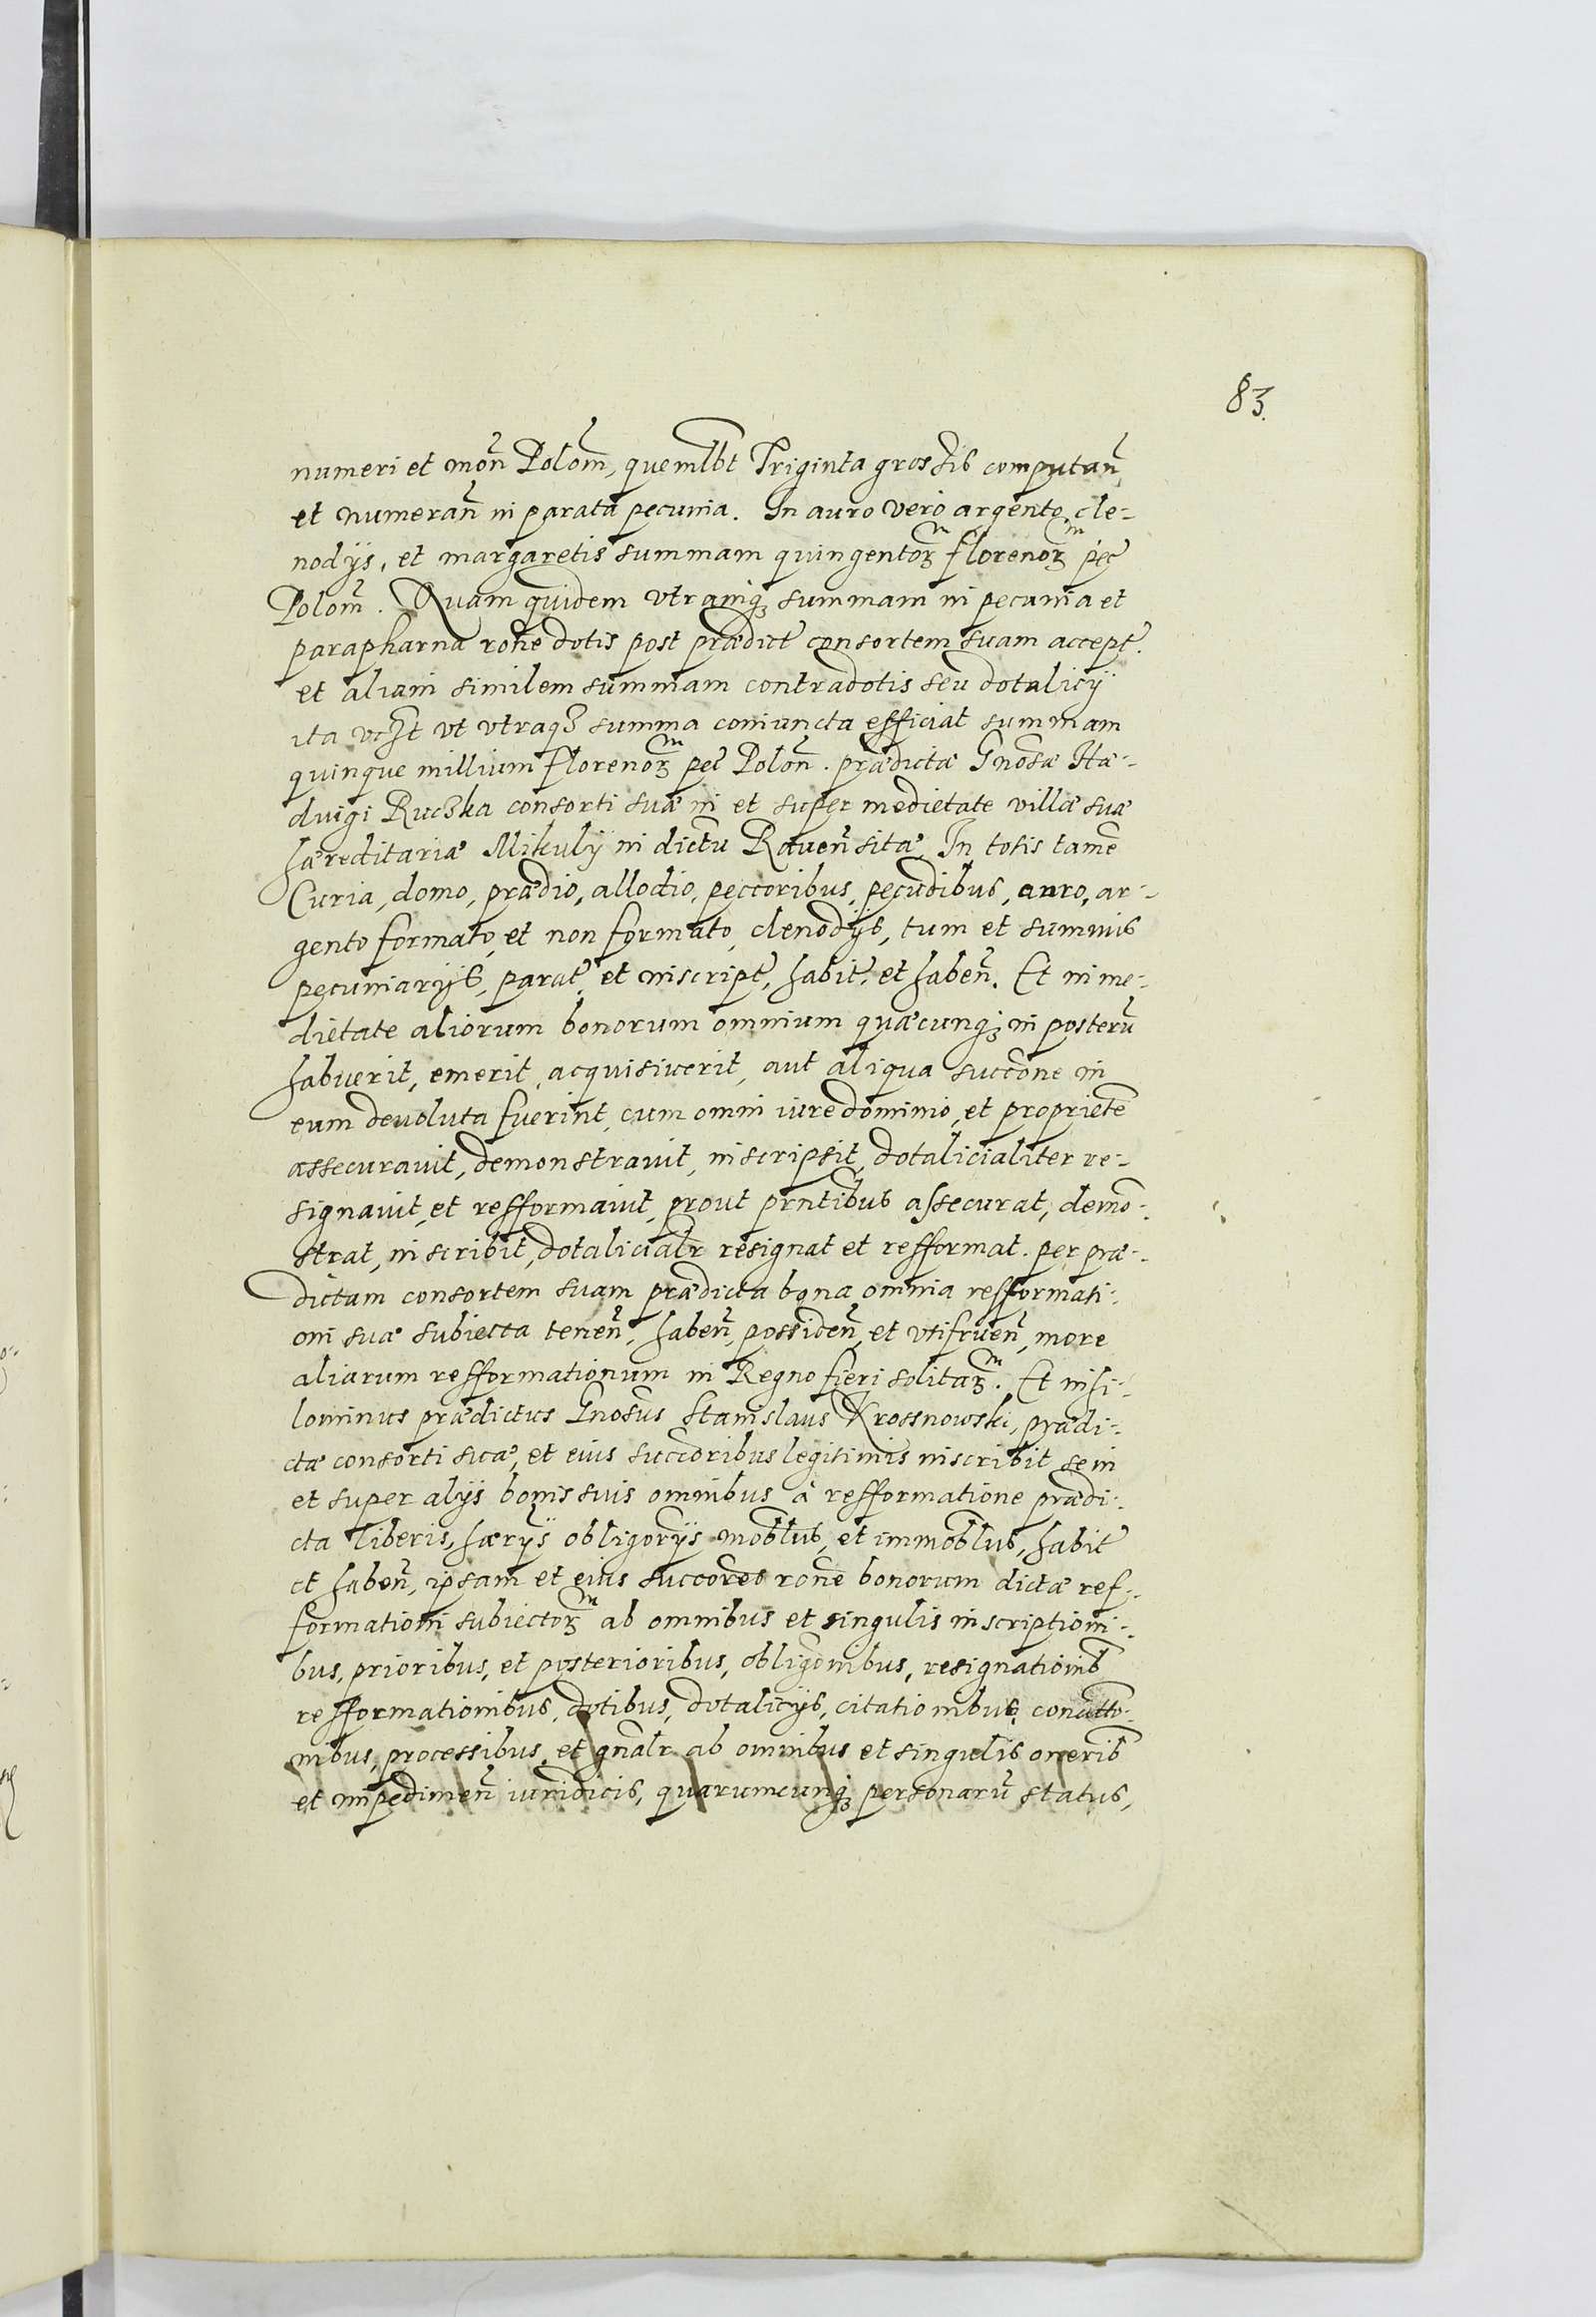 83.
numeri et mon̄ Polom̄, quemlbt Triginta grossis computan̄,
et numeran̄ in parata pecunia. In auro vero argento, cle-
nodÿs, et margaretis summam quingentoꝝ florenoꝝ pec
Polom̄. Quam quidem vtramqꝫ summam in pecunia et
parapharna rōne dotis post prædict consortem suam accept.
et aliam similem summam contradotis seu dotalicÿ
ita vt vtraqꝫ summa coniuncta efficiat summam
quinque millium florenoꝝ pec Polon̄. prædictæ Gnosæ Hæ-
duigi Ruczka consorti suæ in et super medietate villæ suæ
hæreditariæ Mikulÿ in dictu Rauen̄ sitæ, In totis tamē
Curia, domo, prædio, allodio, peccoribus, pecudibus, auro, ar-
gento formato, et non formato, clenodÿs, tum et summis
pecuniarÿs, parat, et inscript, habit, et haben̄. Et in me-
dietate aliorum bonorum omnium quæcunqꝫ in posterū
habuerit, emerit, acquisiuerit, aut aliqua succōne in
eum deuoluta fuerint, cum omni iure dominio, et proprietē
assecurauit, demonstrauit, inscripsit, dotalicialiter re-
signauit, et refformauit, prout prntibus assecurat, demō-
strat, inscribit, dotalicialr resignat et refformat. per præ-
dictam consortem suam prædicta bona omnia refformati-
oni suæ subiecta tenen̄, haben̄, possiden̄, et vtifruen̄, more
aliarum refformationum in Regno fieri solitaꝝ. Et nihi-
lominus prædictus Gnosus Stanislaus Krossnowski, prædi-
ctæ consorti suæ, et eius succoribus legitimis inscribit se in
et super alÿs bonis suis omnibus à refformatione prædi-
cta liberis, hærÿs obligorÿs moblbus, et immoblbus, habit
et haben̄, ipsam et eius succores rōne bonorum dictæ ref-
formationi subiectoꝝ ab omnibus et singulis inscriptioni-
bus, prioribus, et posterioribus, obligōnibus, resignationib
refformationibus, dotibus, dotalicÿs, citationibus,
nibus, processibus, et gnālr ab omnibus et singulis onerib
et impedimen̄ iuridicis, quarumcunqꝫ personarū status,